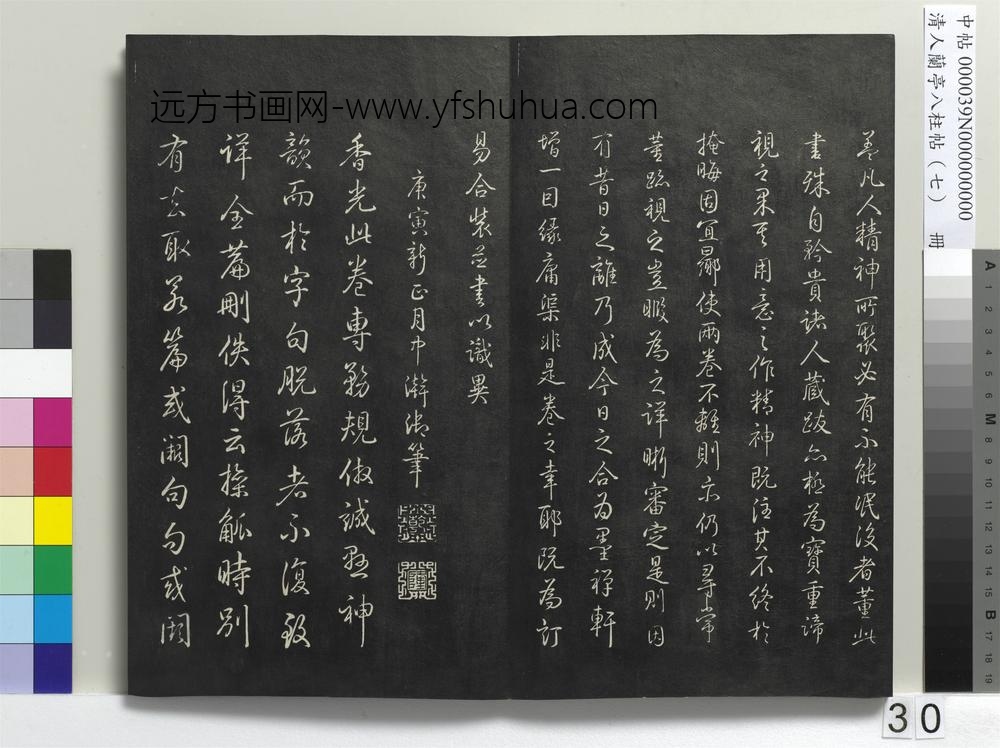 远方书画网-www.yfshuhua.com
中帖 000039N000000000
清人蘭亭八柱帖（七） 冊
蓋凡人精神所聚必有不能泯沒者董此
書殊自矜貴諸人藏跋亦極為寶重諦
視之果其用意之作精神既注其不終於
掩晦固宜曏使兩卷不離則亦仍以尋常
董跡視之豈暇為之詳晰審定是則因
有昔日之離乃成今日之合為墨禪軒
增一因緣庸渠非是卷之幸耶既為訂
易合裝並書以識異
庚寅新正月中澣御筆
香光此卷專務規倣誠懸神
韻而於字句脫落者不復致
詳全篇刪佚得云操觚時別
有去取若篇或闕句句或闕
30
A 1 2 3 4 5 6 M 8 9 10 11 12 13 14 15 B 17 18 19